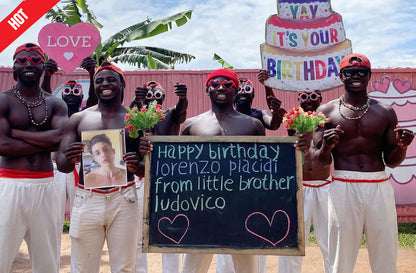 HOT
LOVE
YAY
IT'S YOUR
BIRTHDAY
Happy birthday
lorenzo placidi
from little brother
ludovico